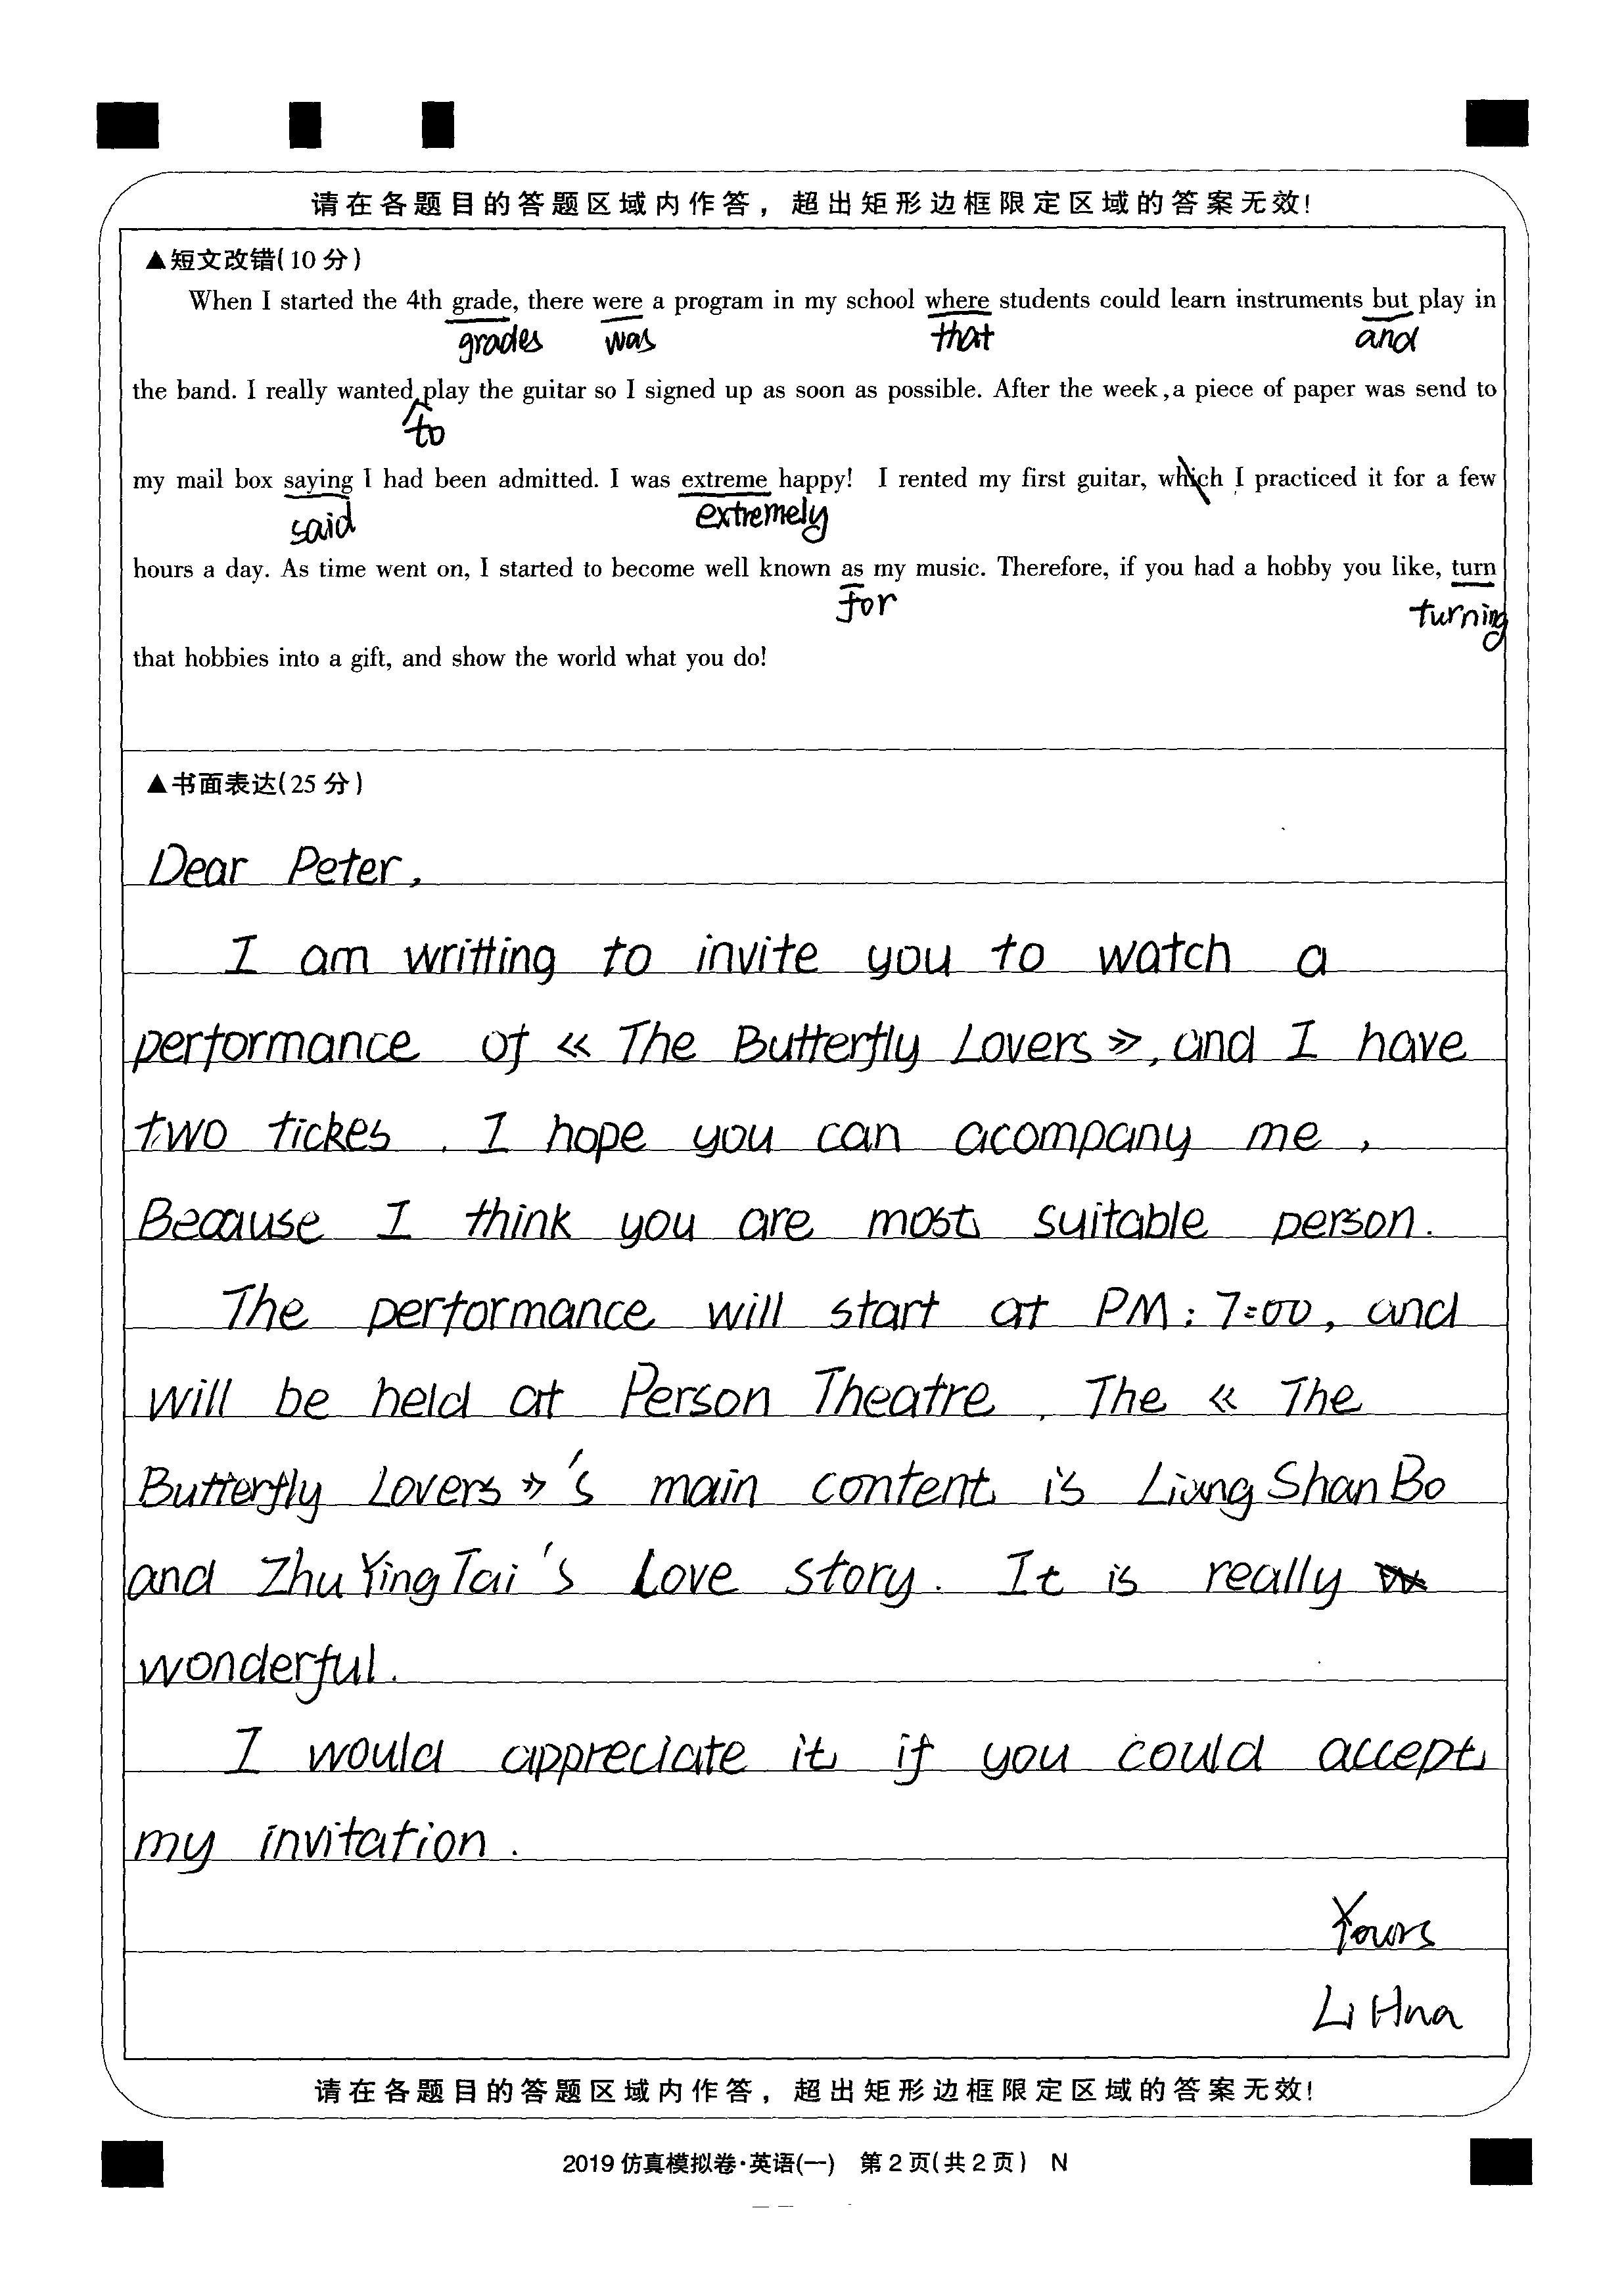 请在各题目的答题区域内作答，超出矩形边框限定区域的答案无效!
▲短文改错(10分)
When I started the 4th grade, there were a program in my school where students could learn instruments but play in
grades was that and
the band. I really wanted play the guitar so I signed up as soon as possible. After the week,a piece of paper was send to
to
my mail box saying I had been admitted. I was extreme happy! I rented my first guitar, which I practiced it for a few
said extremely
hours a day. As time went on, I started to become well known as my music. Therefore, if you had a hobby you like, turn
for turning
that hobbies into a gift, and show the world what you do!
▲书面表达(25分)
Dear Peter,
I am writting to invite you to watch a
performance of «The Butterfly Lovers», and I have
two tickes. I hope you can acompany me,
Because I think you are most suitable person.
The performance will start at PM: 7:00, and
will be held at Person Theatre. The «The
Butterfly Lovers»'s main content is Liang Shan Bo
and Zhu Ying Tai's Love story. It is really
wonderful.
I would appreciate it if you could accept
my invitation.
Yours
Li Hua
请在各题目的答题区域内作答，超出矩形边框限定区域的答案无效!
2019仿真模拟卷·英语(一) 第2页(共2页) N